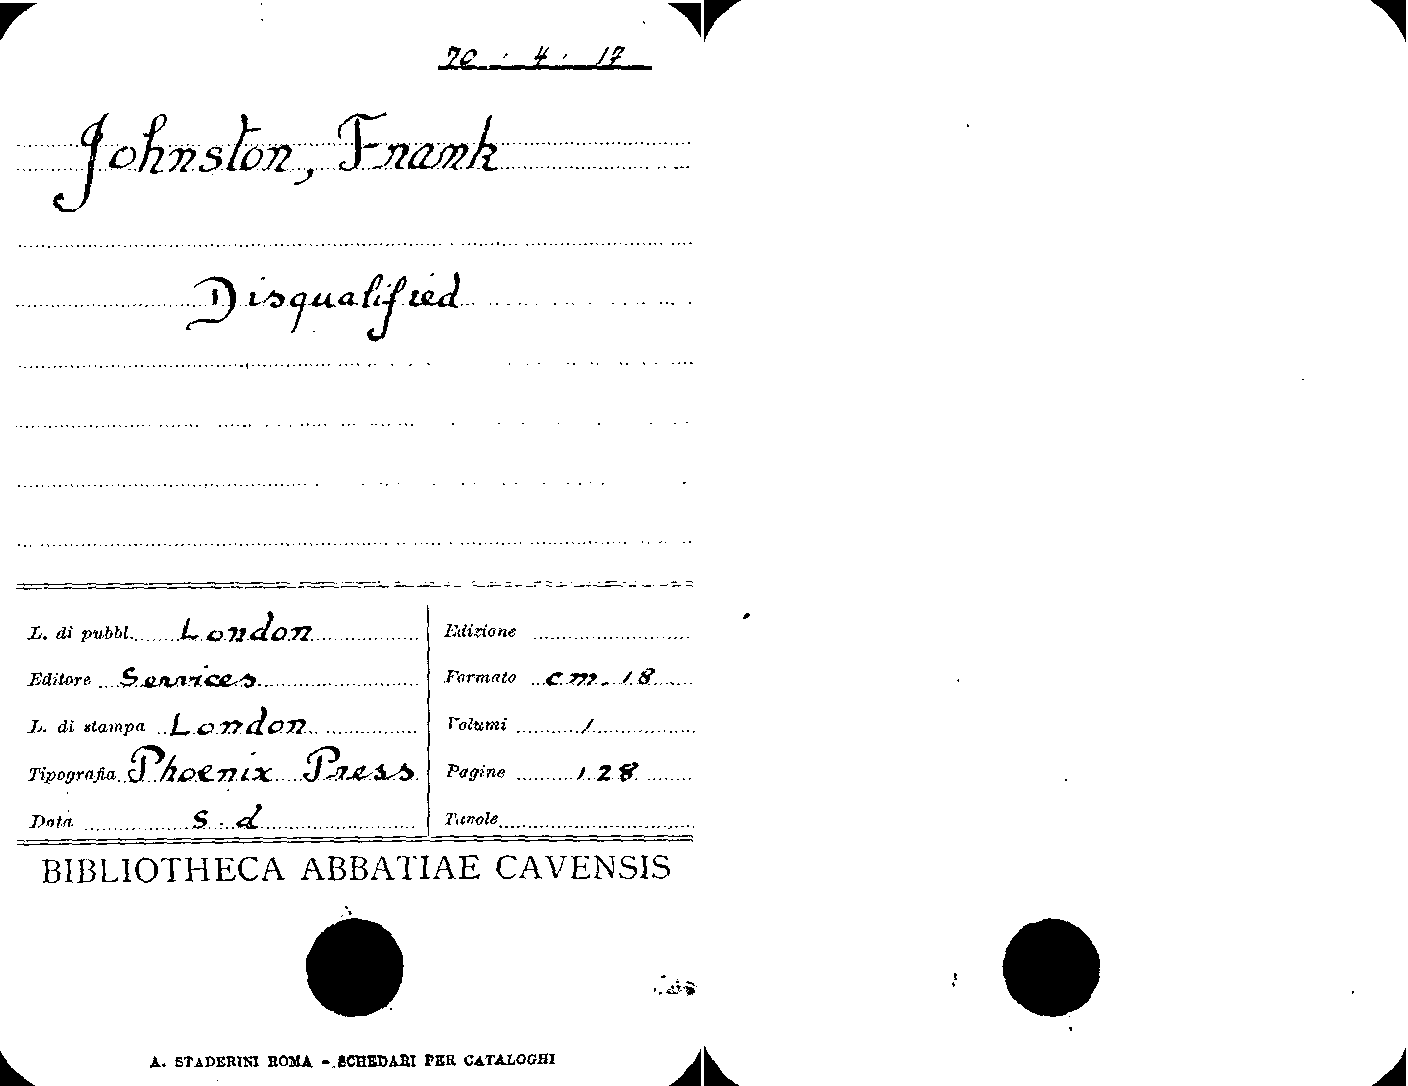 70 . 4 . 17
Johnston, Frank
Disqualified
L. di pubbl. London
Editore Services
L. di stampa London
Tipografia Phoenix Press
Data s.d
Edizione
Formato cm. 18
Volumi 1
Pagine 128
Tavole
BIBLIOTHECA ABBATIAE CAVENSIS
A. STADERINI ROMA - SCHEDARI PER CATALOGHI